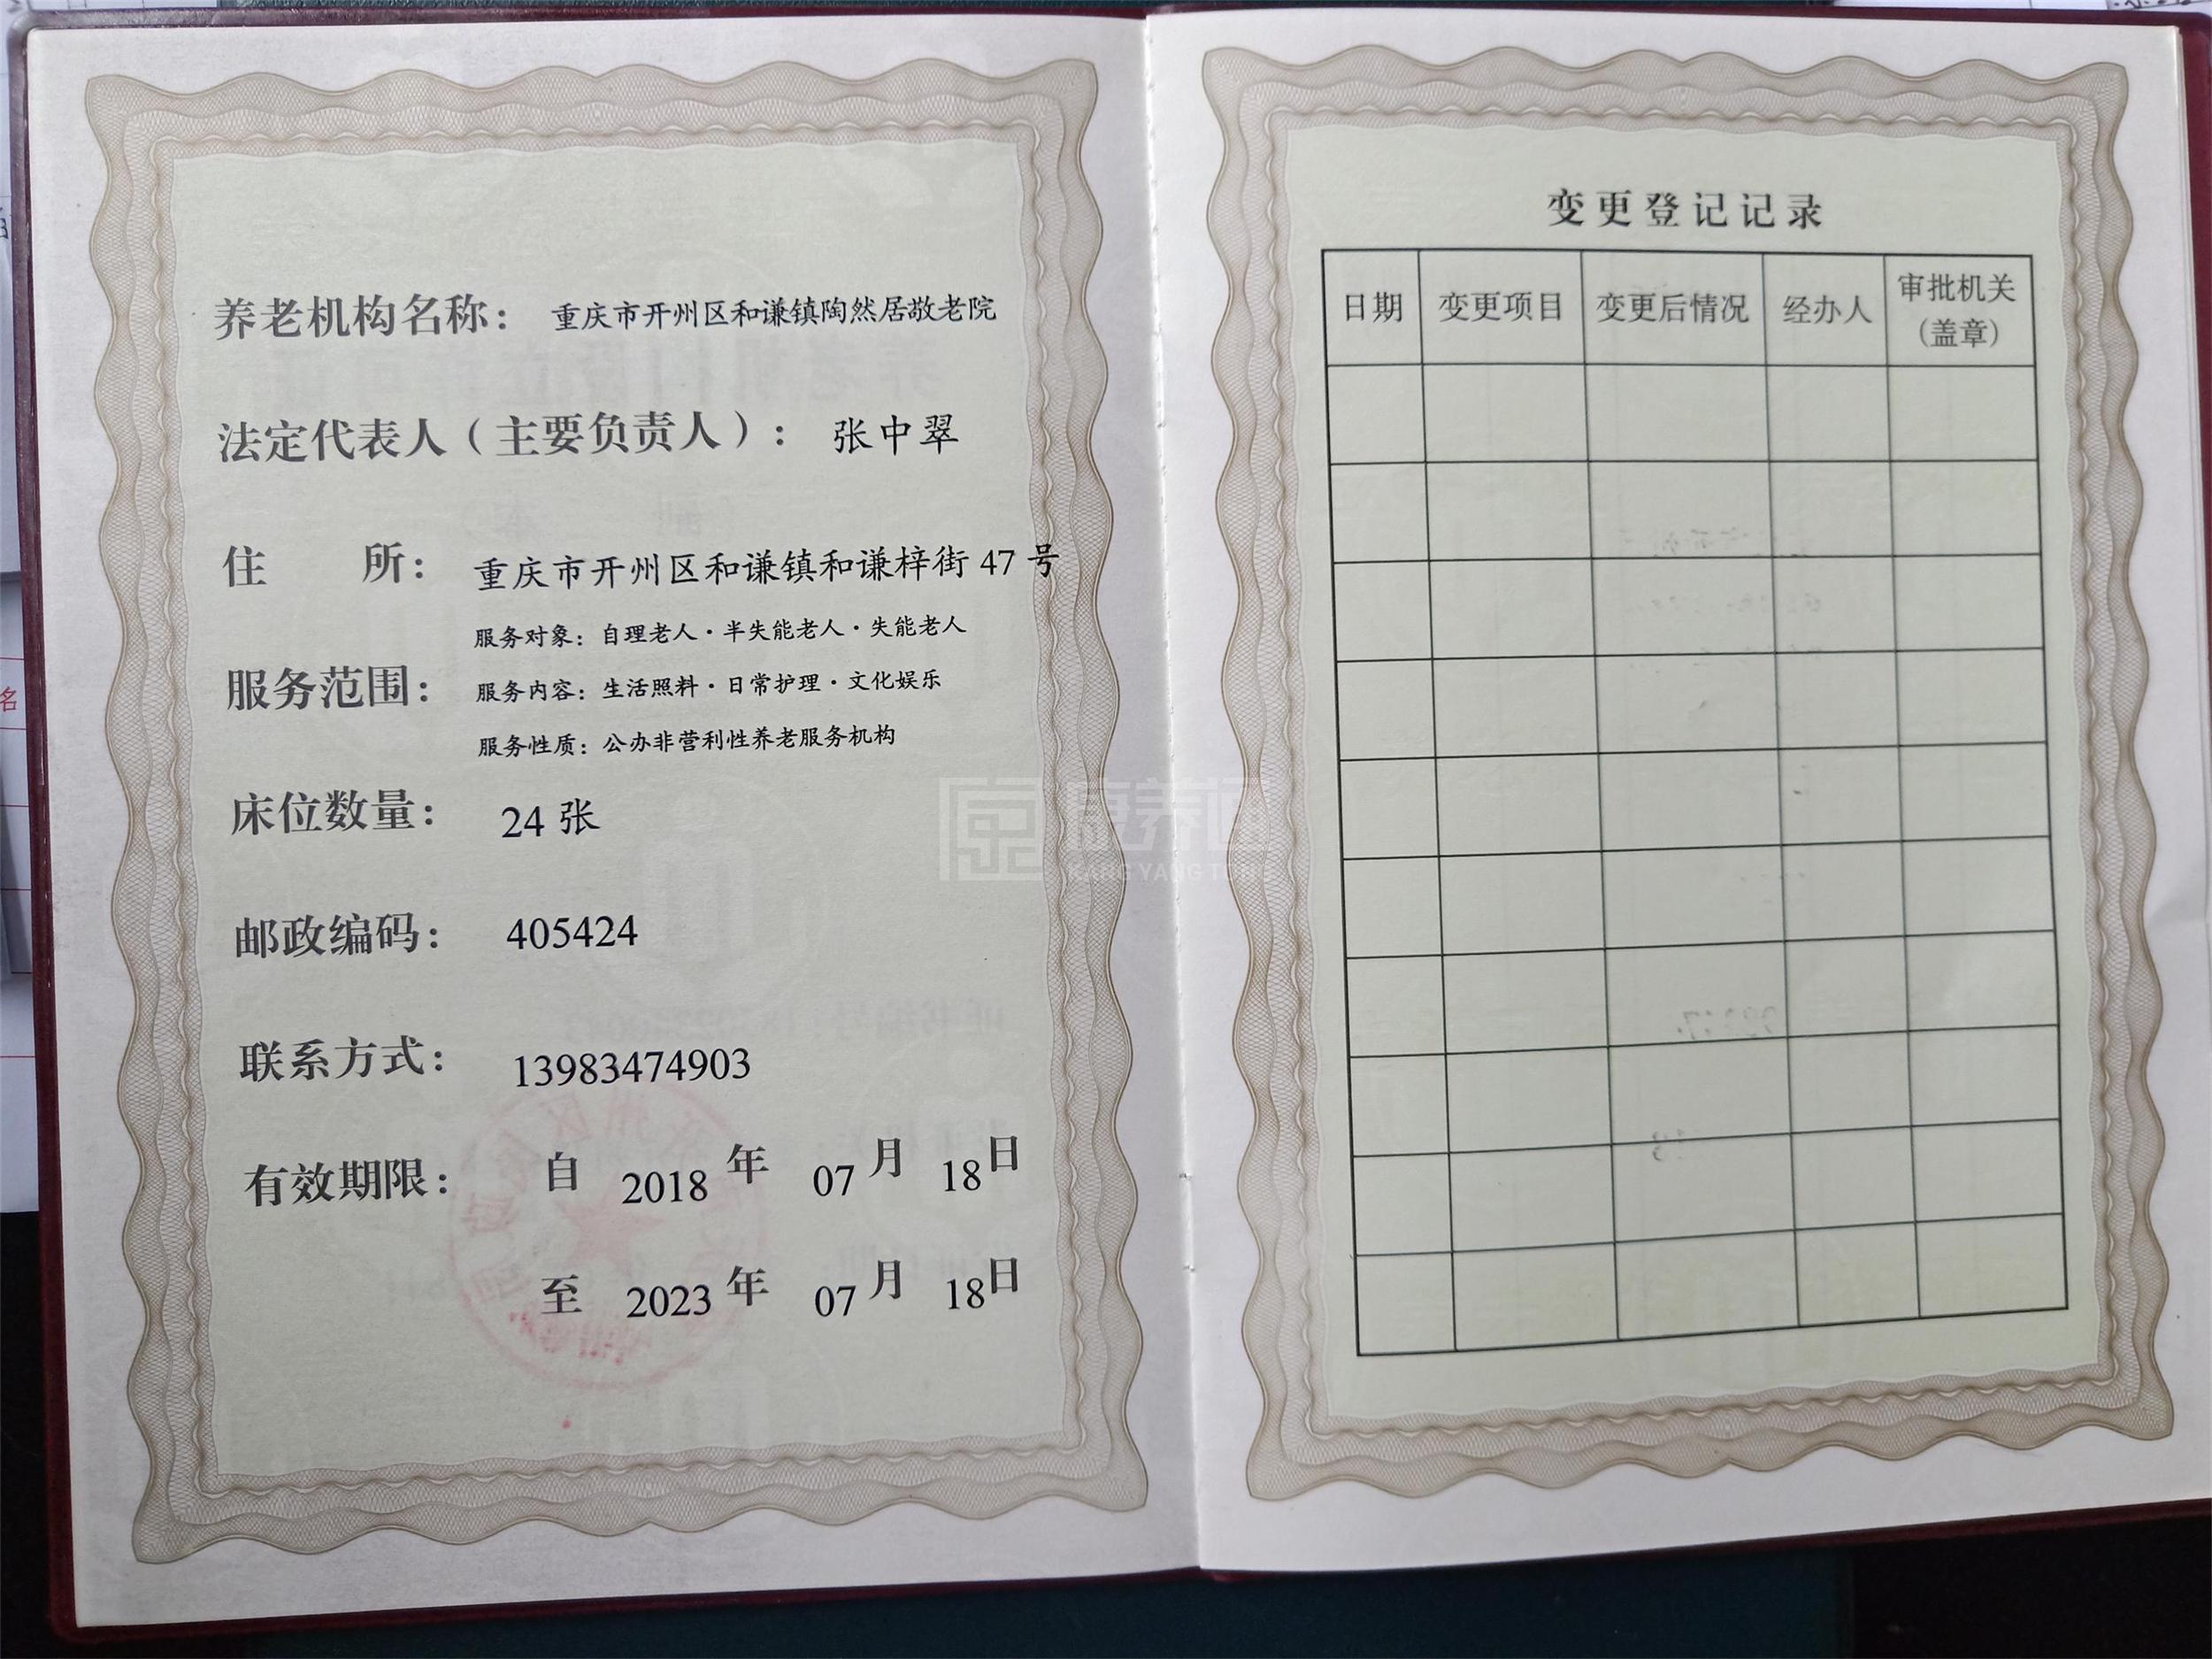 养老机构名称： 重庆市开州区和谦镇陶然居敬老院
法定代表人（主要负责人）： 张中翠
住 所： 重庆市开州区和谦镇和谦梓街 47 号
服务范围：
服务对象：自理老人·半失能老人·失能老人
服务内容：生活照料·日常护理·文化娱乐
服务性质：公办非营利性养老服务机构
床位数量： 24 张
邮政编码： 405424
联系方式： 13983474903
有效期限： 自 2018 年 07 月 18 日
至 2023 年 07 月 18 日
变更登记记录
日期 变更项目 变更后情况 经办人 审批机关（盖章）
康养通
KANG YANG TONG